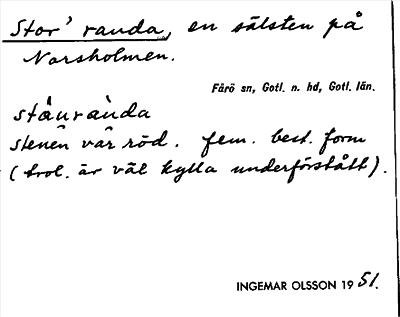 Stor' randa, en sälsten på
Norsholmen.
Fårö sn, Gotl. n. hd, Gotl. län.
stå̀urànda
stenen var röd. fem. best. form
(trol. är väl kylla underförstått).
INGEMAR OLSSON 1951.